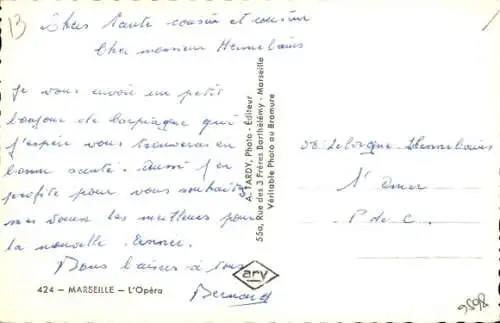 13
Chers tante cousin et cousine
Cher monsieur Hennebains
Je vous envoi un petit
bonjour de Carpiagne qui
j'espère vous trouveras en
bonne santé. Aussi j'en
profite pour vous souhaiter
mes voeux les meilleurs pour
la nouvelle Année.
Bons baisers à tous
Bernard
424 – MARSEILLE – L'Opéra
A. TARDY, Photo - Éditeur
55a, Rue des 3 Frères Barthélémy - Marseille
Véritable Photo au Bromure
ary
Hennebains
St Omer
P de C.
9598